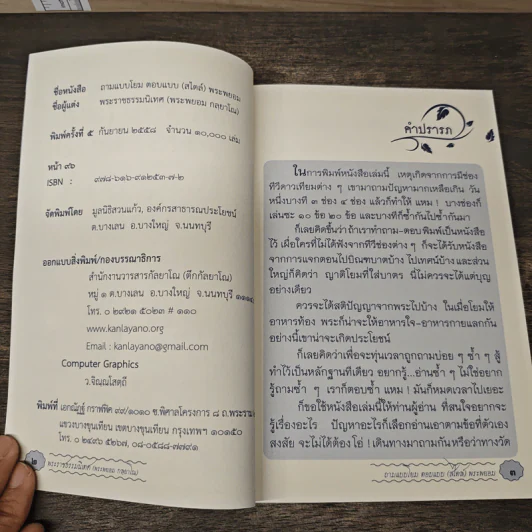 ชื่อหนังสือ ถามแบบโยม ตอบแบบ (สไตล์) พระพยอม
ชื่อผู้แต่ง พระราชธรรมนิเทศ (พระพยอม กลฺยาโณ)
พิมพ์ครั้งที่ ๕ กันยายน ๒๕๕๘ จำนวน ๑๐,๐๐๐ เล่ม
หน้า ๙๖
ISBN : ๙๗๘-๖๑๖-๙๑๒๕๓-๗-๒
จัดพิมพ์โดย มูลนิธิสวนแก้ว, องค์กรสาธารณประโยชน์
ต.บางเลน อ.บางใหญ่ จ.นนทบุรี
ออกแบบสิ่งพิมพ์/กองบรรณาธิการ
สำนักงานวารสารกัลยาโณ (ตึกกัลยาโณ)
หมู่ ๑ ต.บางเลน อ.บางใหญ่ จ.นนทบุรี ๑๑๑๔๐
โทร. ๐ ๒๙๒๑ ๕๐๒๓ # ๑๑๐
www.kanlayano.org
Email : kanlayano@gmail.com
Computer Graphics
ว.จิณฺณโสตถิ์
พิมพ์ที่ เอกณัฏฐ์ กราฟฟิค ๙๙/๑๐๑๐ ซ.พิศาลโครงการ ๘ ถ.พระราม
แขวงบางขุนเทียน เขตบางขุนเทียน กรุงเทพฯ ๑๐๑๕๐
๒
พระราชธรรมนิเทศ (พระพยอม กลฺยาโณ)
คำปรารภ
ในการพิมพ์หนังสือเล่มนี้ เหตุเกิดจากการมีช่อง
ทีวีดาวเทียมต่าง ๆ เขามาถามปัญหามากเหลือเกิน วัน
หนึ่งบางที ๓ ช่อง ๔ ช่อง แล้วก็ทำให้ แหม ! บางช่องก็
เล่นซะ ๑๐ ข้อ ๒๐ ข้อ และบางทีก็ซ้ำกันไปซ้ำกันมา
ก็เลยคิดขึ้นว่า ถ้าเราทำถาม-ตอบ พิมพ์เป็นหนังสือ
ไว้ เผื่อใครที่ไม่ได้ฟังจากทีวีช่องต่าง ๆ ก็จะได้รับหนังสือ
จากการแจกตอนไปบิณฑบาตบ้าง ไปเทศน์บ้าง และส่วน
ใหญ่ก็คิดว่า ญาติโยมที่ใส่บาตร นี่ไม่ควรจะได้แต่บุญ
อย่างเดียว
ควรจะได้สติปัญญาจากพระไปบ้าง ในเมื่อโยมให้
อาหารท้อง พระก็น่าจะให้อาหารใจ-อาหารกายแลกกัน
อย่างนี้เขาน่าจะเกิดประโยชน์
ก็เลยคิดว่าเพื่อจะทุ่นเวลาถูกถามบ่อย ๆ ซ้ำ ๆ สู้
ทำไว้เป็นหลักฐานทีเดียว อยากรู้...อ่านซ้ำ ๆ ไม่ใช่อยาก
รู้ถามซ้ำ ๆ เราก็ตอบซ้ำ แหม ! มันก็หมดเวลาไปเยอะ
ก็ขอใช้หนังสือเล่มนี้ให้ท่านผู้อ่าน ที่สนใจอยากจะ
รู้เรื่องอะไร ปัญหาอะไรก็เลือกอ่านเอาตามข้อที่ตัวเอง
สงสัย จะไม่ได้ต้องโอ่ ! เดินทางมาถามกันหรือว่าทางวัด
ถามแบบโยม ตอบแบบ (สไตล์) พระพยอม
๓